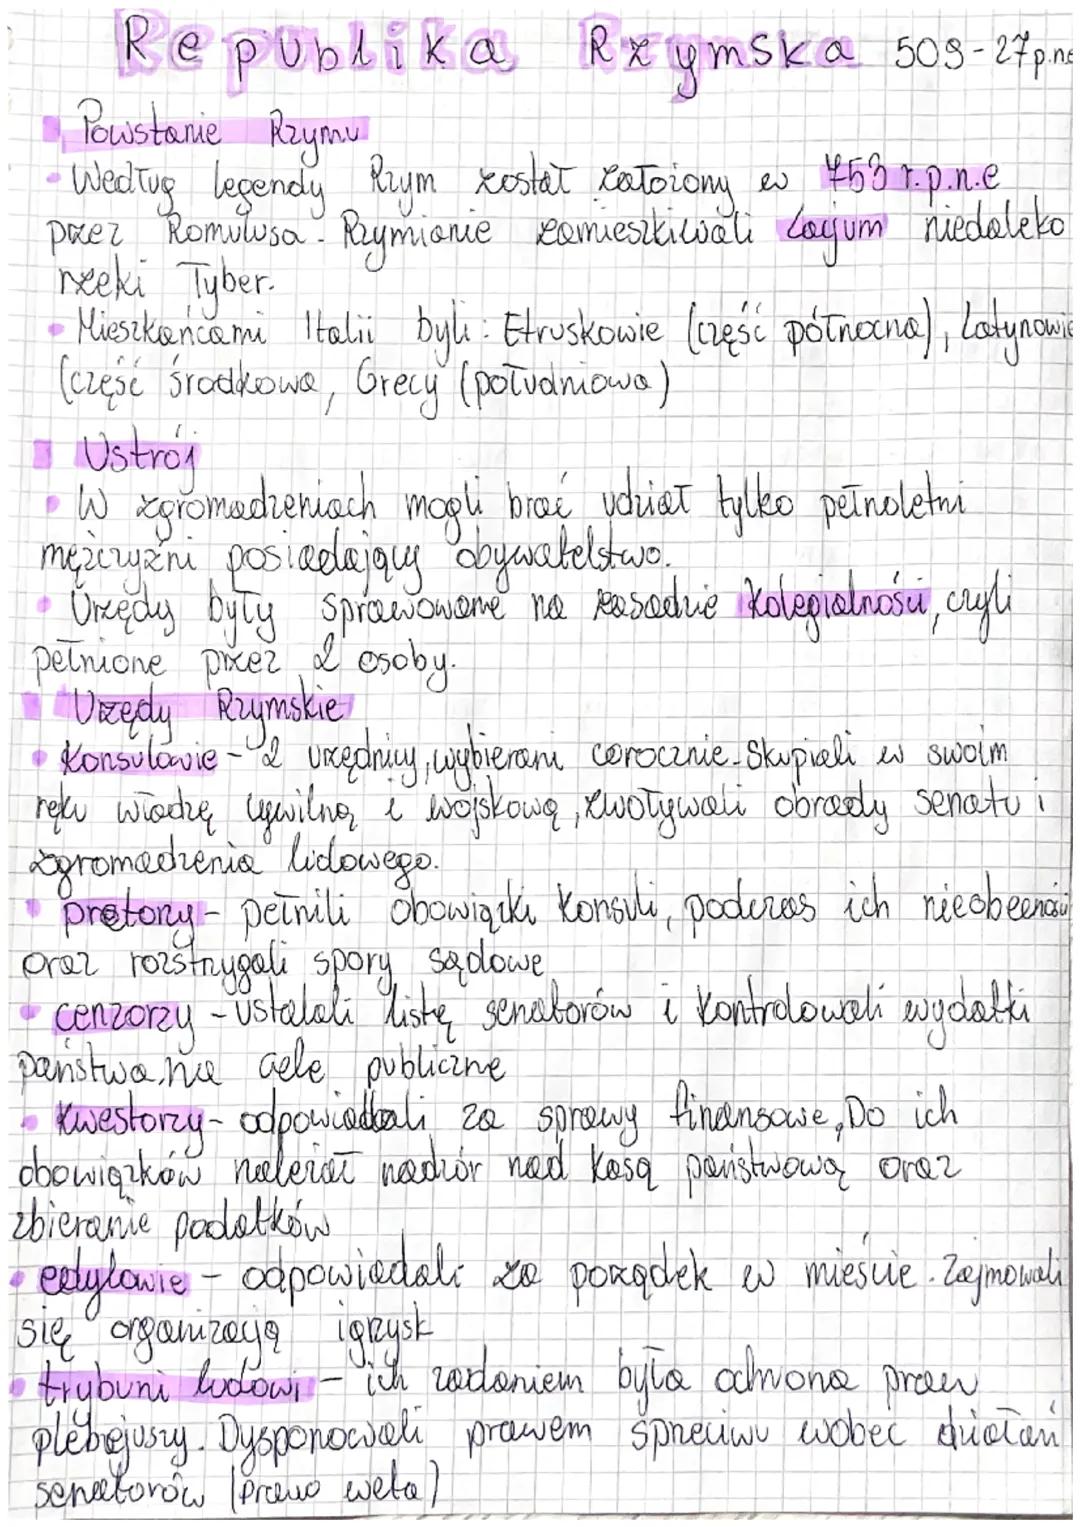 Republika Rzymska 509-27p.ne
Powstanie Rzymu
• Według legendy Rzym został założony w 753 r.p.n.e
przez Romulusa. Rzymianie zamieszkiwali Lacjum niedaleko
rzeki Tyber.
• Mieszkańcami Italii byli: Etruskowie (część północna), Latynowie
(część środkowa, Grecy (południowa)
Ustrój
• W zgromadzeniach mogli brać udział tylko pełnoletni
mężczyźni posiadający obywatelstwo.
• Urzędy były sprawowane na zasadzie Kolegialności, czyli
pełnione przez 2 osoby.
Urzędy Rzymskie
• Konsulowie - 2 urzędnicy, wybierani corocznie. Skupiali w swoim
ręku władzę cywilną i wojskową, zwoływali obrady senatu i
zgromadzenia ludowego.
• pretorzy - pełnili obowiązki konsuli, podczas ich nieobecności
oraz rozstrzygali spory sądowe
• cenzorzy - ustalali listę senatorów i kontrolowali wydatki
państwa na cele publiczne
• kwestorzy - odpowiadali za sprawy finansowe, Do ich
obowiązków należał nadzór nad kasą państwową oraz
zbieranie podatków
• edylowie - odpowiadali za porządek w mieście. Zajmowali
się organizacją igrzysk
• trybuni ludowi - ich zadaniem była ochrona praw
plebejuszy. Dysponowali prawem sprzeciwu wobec działań
senatorów (prawo weta)